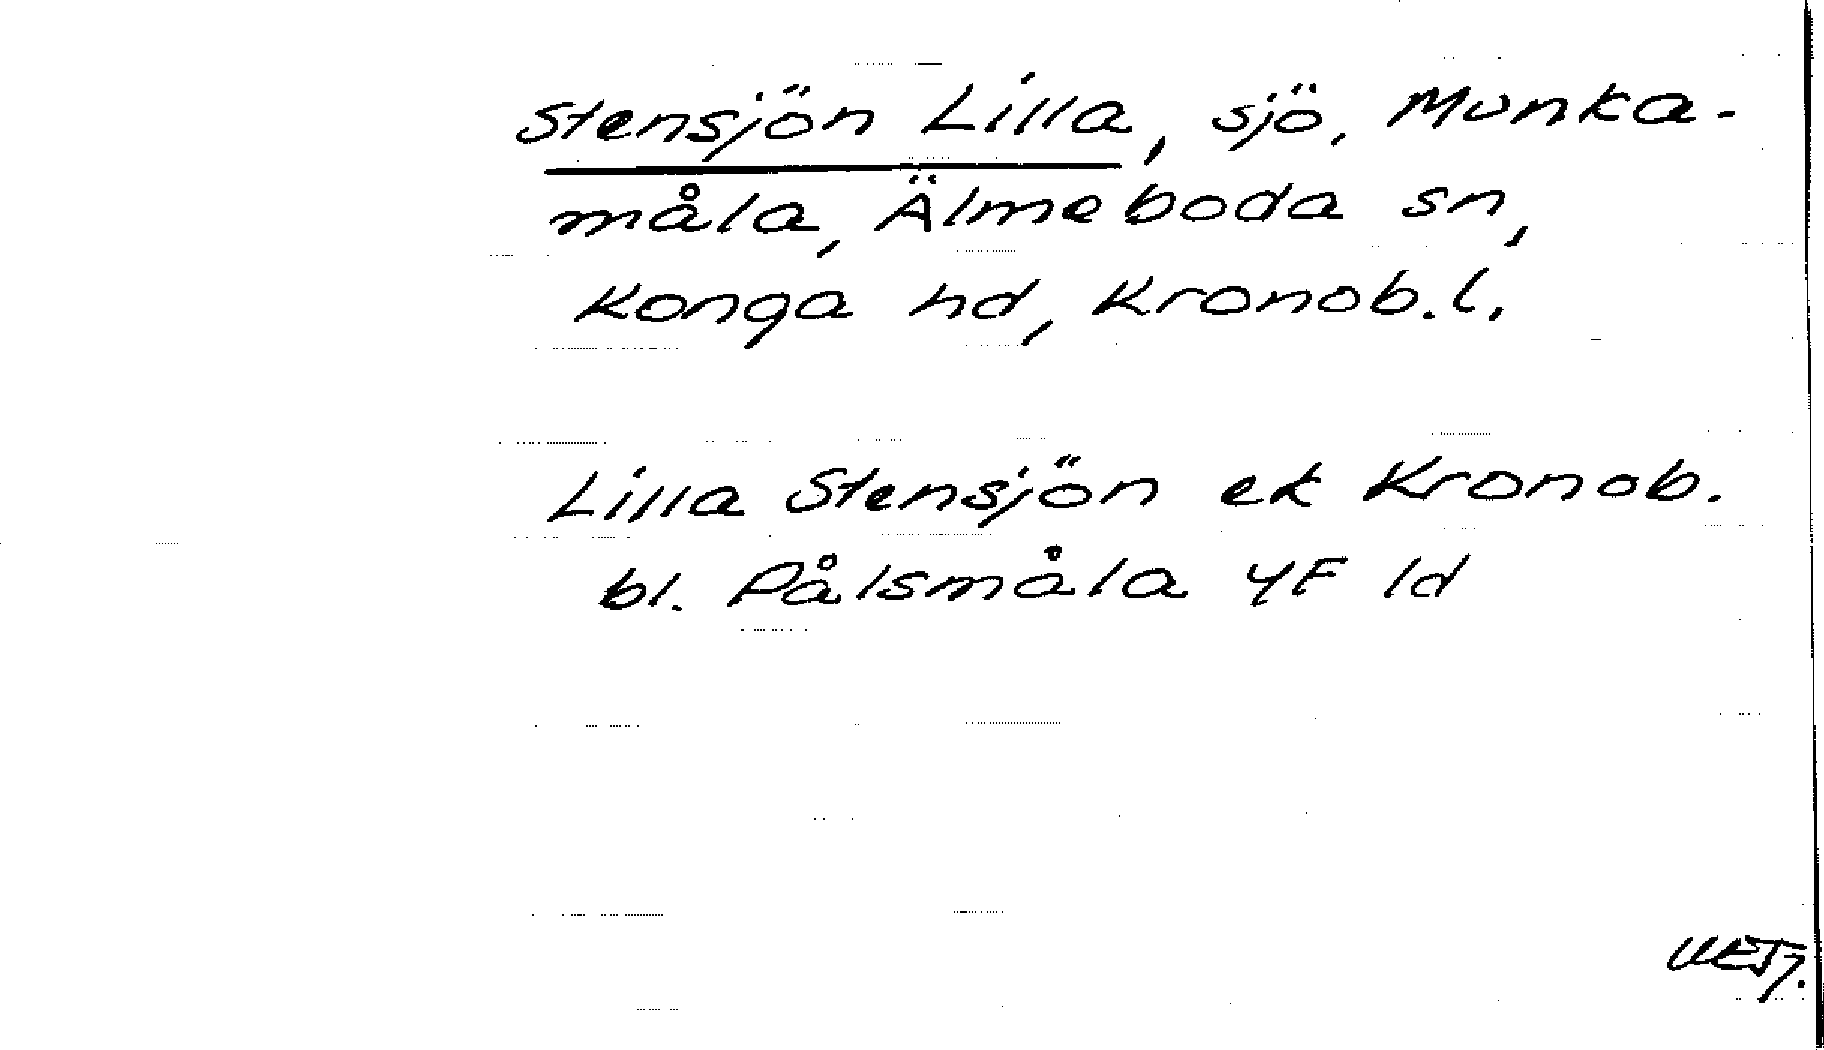 Stensjön Lilla, sjö, Munka-
måla, Älmeboda sn,
Konga hd, Kronob.l.
Lilla Stensjön ek Kronob.
bl. Pålsmåla 4F 1d